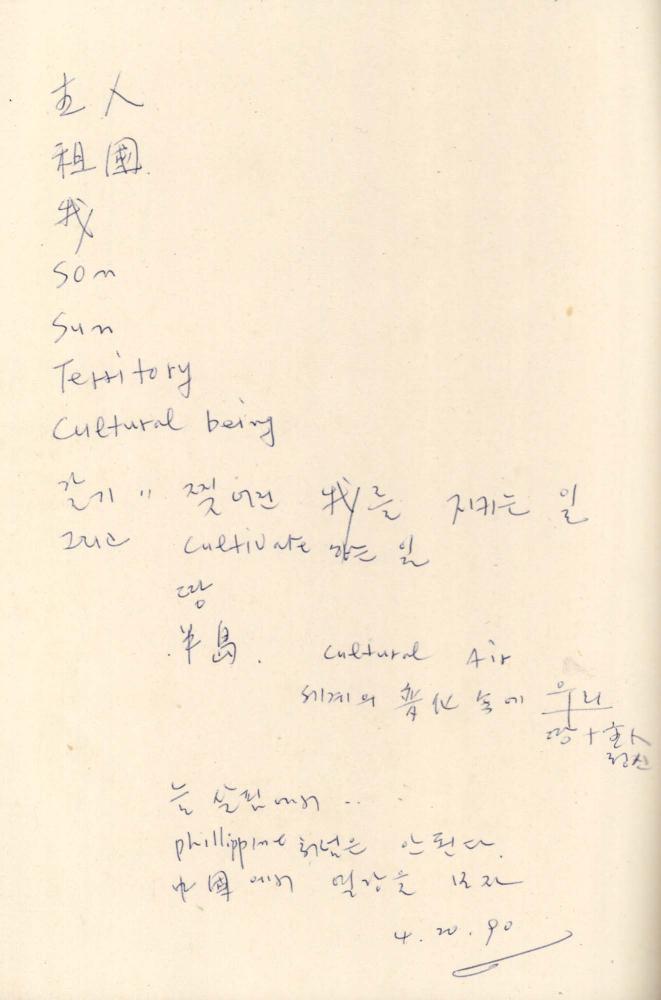 主人
祖國
我
son
sun
Territory
Cultural being
갈기 〃 찢어진 我를 지키는 일
그리고 cultivate 하는 일
땅
半島. cultural Air
세계의 普化 속에 우리
땅 + 主人
정신
늘 살핌에서 ..
phillippine 안된다.
中國에서 보자
4. 20. 90